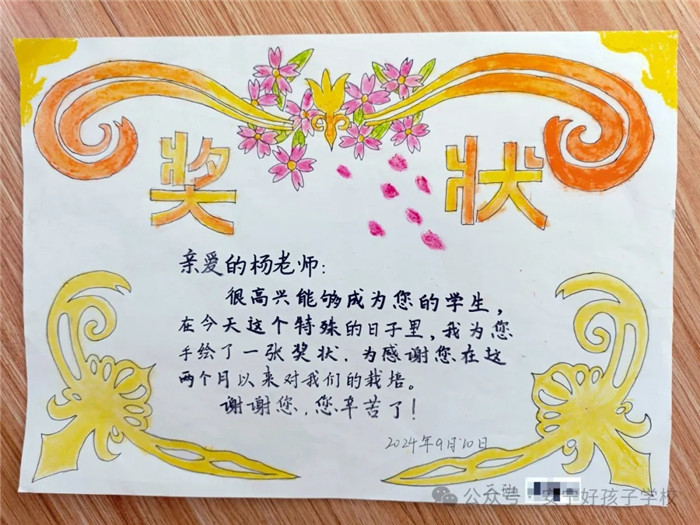 奖 状
亲爱的杨老师:
很高兴能够成为您的学生,
在今天这个特殊的日子里,我为您
手绘了一张奖状.为感谢您在这
两个月以来对我们的栽培。
谢谢您,您辛苦了!
2024年9月10日
公众号·安宁好孩子学校